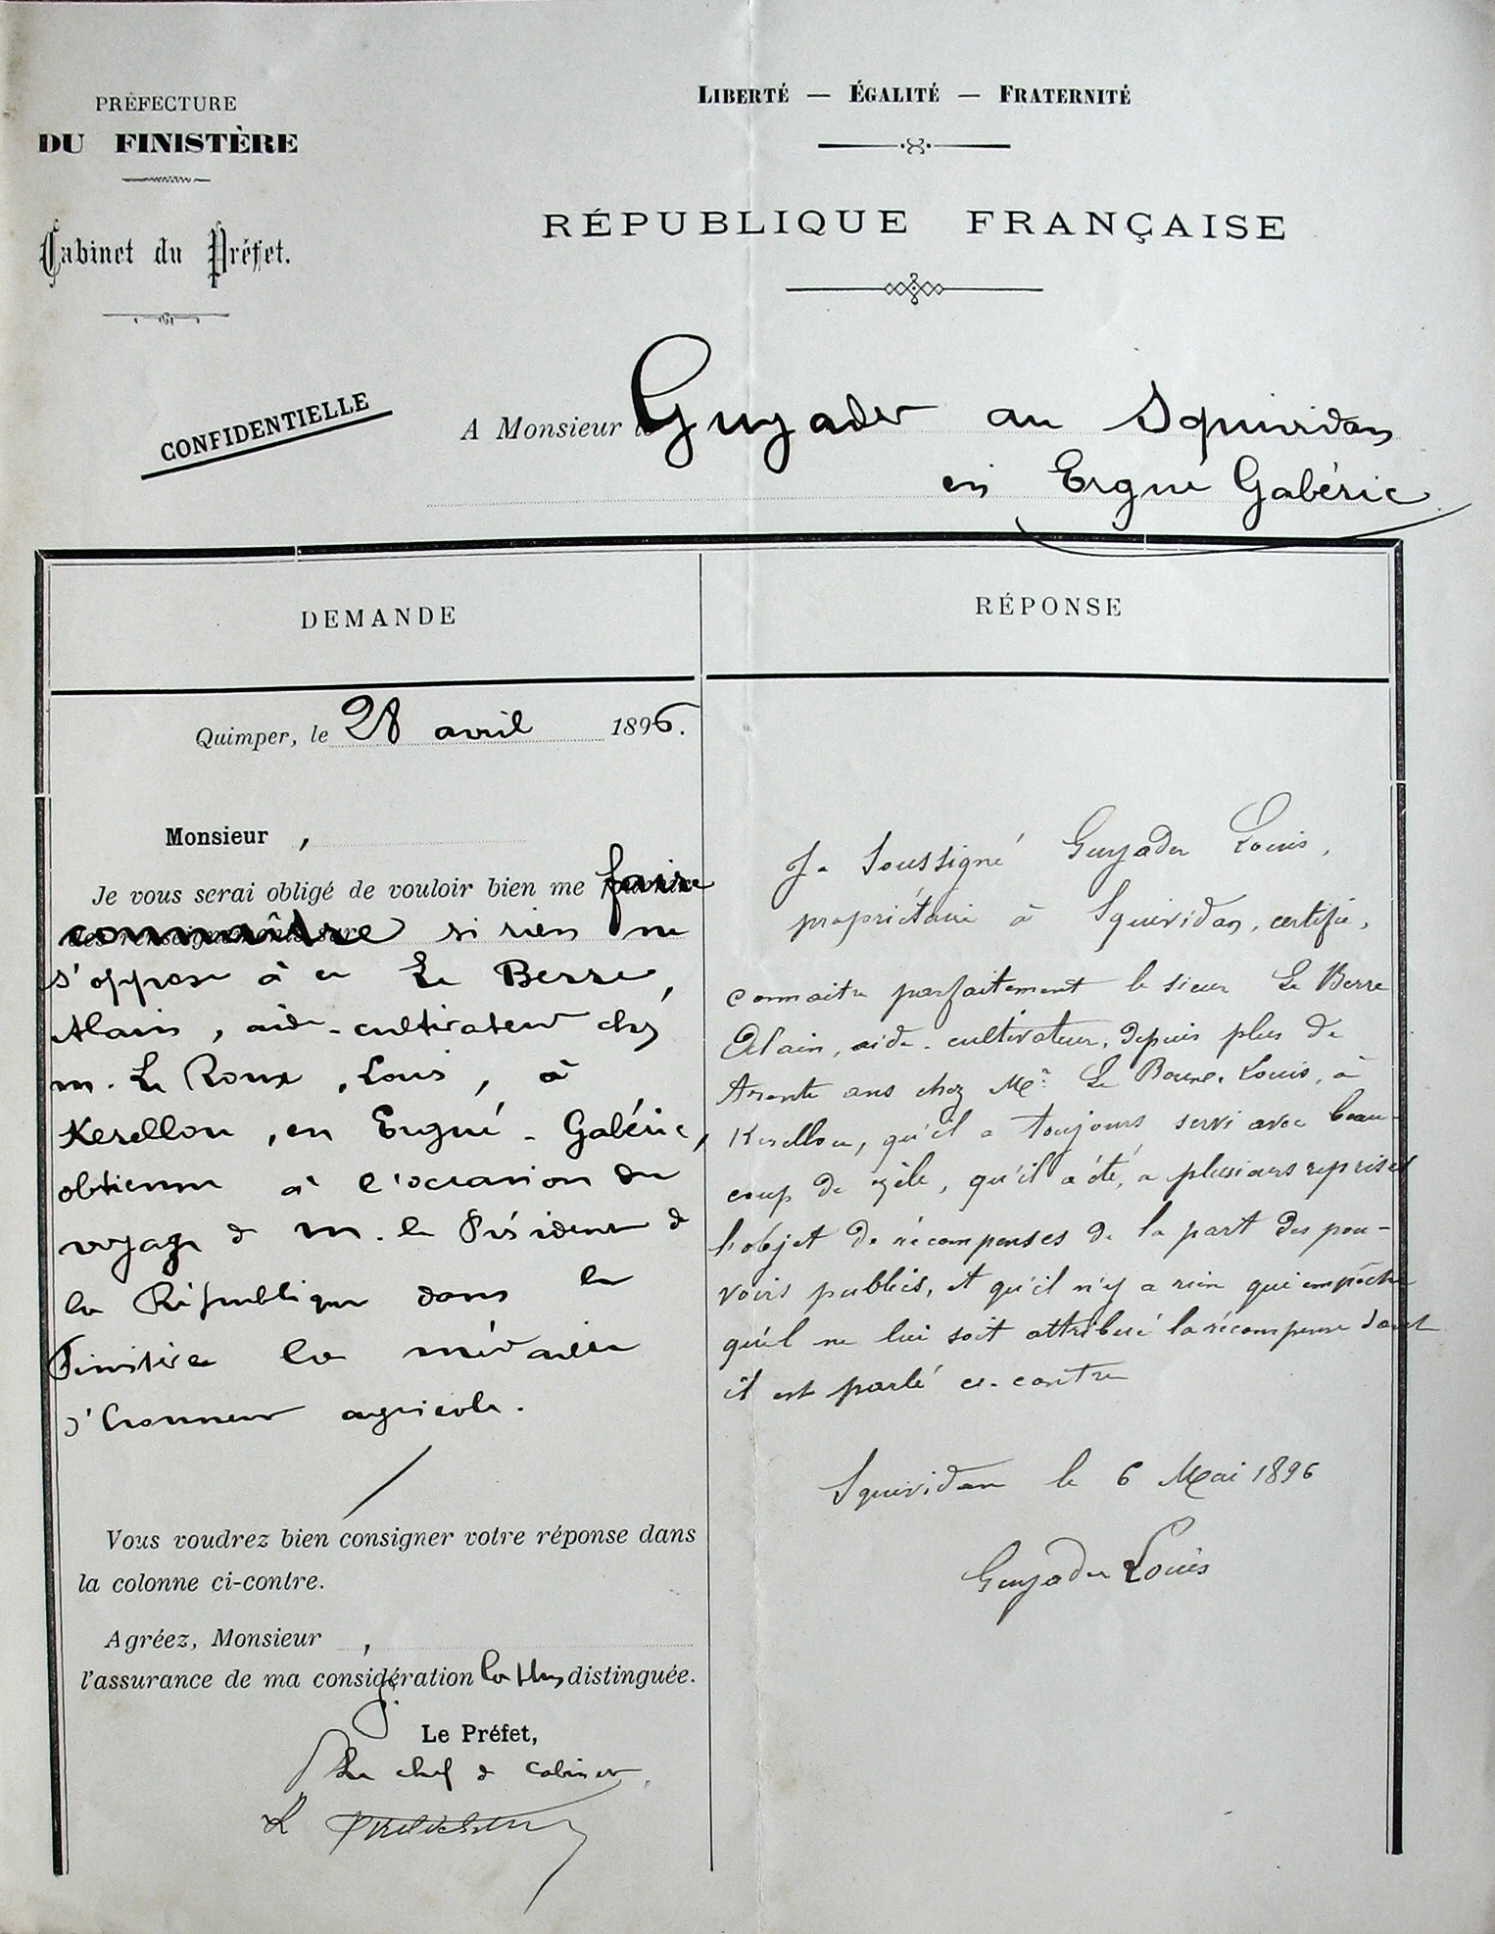 PRÉFECTURE
DU FINISTÈRE
Cabinet du Préfet.
CONFIDENTIELLE
LIBERTÉ — ÉGALITÉ — FRATERNITÉ
RÉPUBLIQUE FRANÇAISE
A Monsieur le Guyader au Squividan
en Ergué Gabéric
DEMANDE
Quimper, le 28 avril 1896.
Monsieur ,
Je vous serai obligé de vouloir bien me faire
connaître si rien ne
s'oppose à ce Le Berre,
Alain, aide-cultivateur chez
m. Le Roux, Louis, à
Kerellou, en Ergué-Gabéric,
obtienne à l'occasion du
voyage de m. le Président de
la République dans le
Finistère la médaille
d'honneur agricole.
Vous voudrez bien consigner votre réponse dans
la colonne ci-contre.
Agréez, Monsieur ,
l'assurance de ma considération la plus distinguée.
Le Préfet,
Le chef de cabinet,
RÉPONSE
Je Soussigné Guyader Louis,
propriétaire à Squividan, certifie,
connaitre parfaitement le sieur Le Berre
Alain, aide-cultivateur, depuis plus de
trente ans chez Mr. Le Roux, Louis, à
Kerellou, qu'il a toujours servi avec beau-
coup de zèle, qu'il a été, a plusieurs reprises
l'objet de récompenses de la part des pou-
voirs publics, et qu'il n'y a rien qui empêche
qu'il ne lui soit attribué la récompense dont
il est parlé ci-contre
Squividan le 6 Mai 1896
Guyader Louis